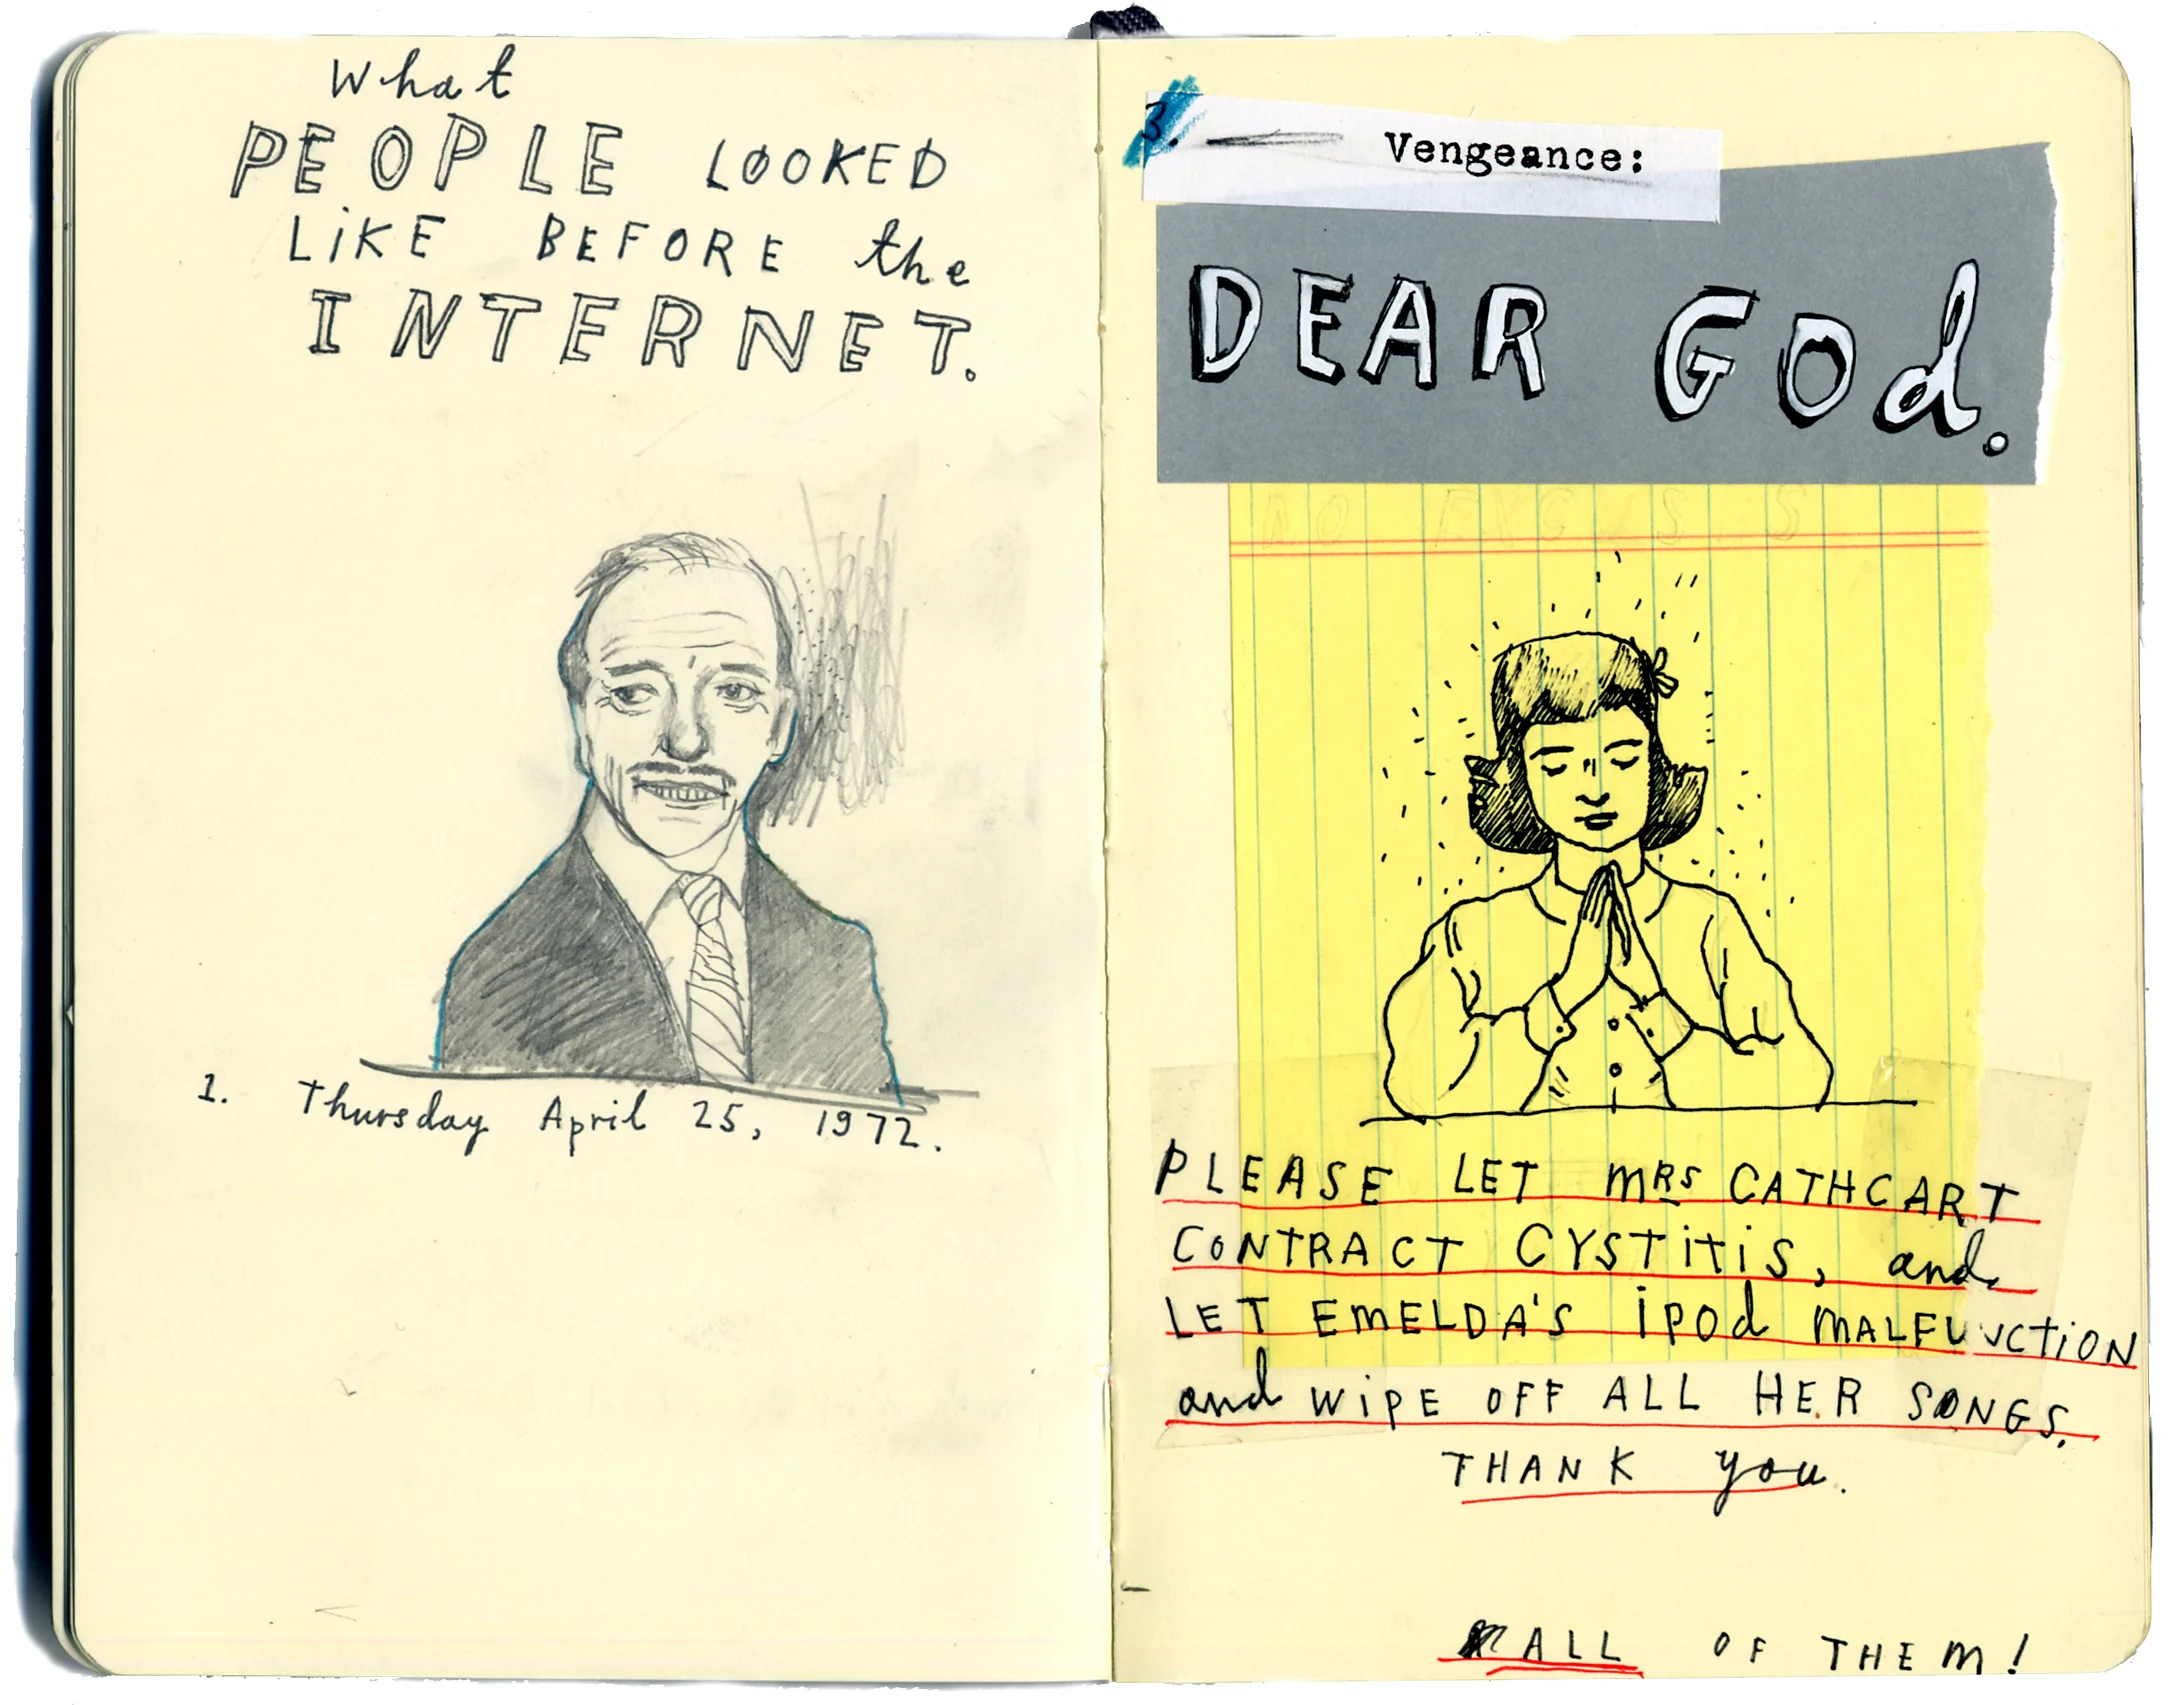 What
PEOPLE LOOKED
LiKE BEFORE the
INTERNET.
1. Thursday April 25, 1972.
3. Vengeance:
DEAR GOd.
NO EXCISIS
PLEASE LET MRS CATHCART
CONTRACT CYSTitiS, and
LET EMELDA'S iPOd MALFUNCTiON
and WiPE OFF ALL HER SONGS.
THANK you.
ALL OF THEM!